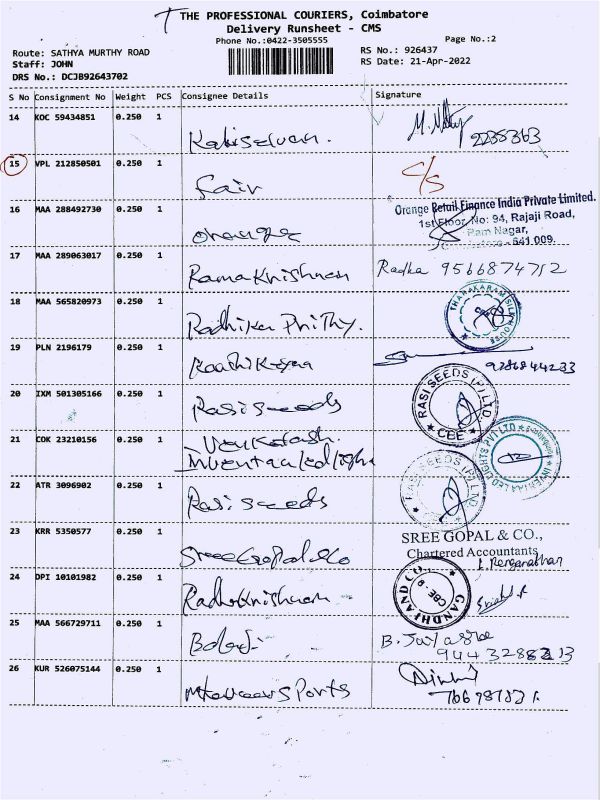 THE PROFESSIONAL COURIERS, Coimbatore
Delivery Runsheet - CMS
Phone No.:0422-3505555
Page No.:2
Route: SATHYA MURTHY ROAD
RS No.: 926437
Staff: JOHN
RS Date: 21-Apr-2022
DRS No.: DCJB92643702
S No Consignment No Weight PCS Consignee Details Signature
14 KOC 59434851 0.250 1
Kabiselvan. 2235363
15 VPL 212850501 0.250 1
fair C/S
Orange Retail Finance India Private Limited.
1st Floor, No: 94, Rajaji Road,
16 MAA 288492730 0.250 1
Orange Ram Nagar,
Coimbatore - 641 009.
17 MAA 289063017 0.250 1
Ramakrishnan Radha 9566874712
18 MAA 565820973 0.250 1
Radhika Prithy.
19 PLN 2196179 0.250 1
9286844233
20 IXM 501305166 0.250 1
Rasi seeds RASI SEEDS (P) LTD. CBE
21 COK 23210156 0.250 1
Venkatash.
LED LIGHTS PVT LTD
22 ATR 3096902 0.250 1
Rasi seeds RASI SEEDS (P) LTD
23 KRR 5350577 0.250 1
SREE GOPAL & CO.,
Chartered Accountants
Sree Gopal & Co
24 DPI 10101982 0.250 1
Radhakrishnan GANDHI AND CO. CBE
25 MAA 566729711 0.250 1
Balaji B.
26 KUR 526075144 0.250 1
Sports